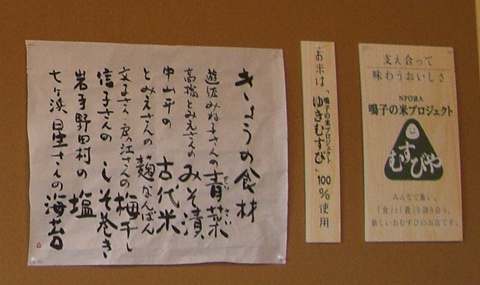 きょうの食材
遊佐みね子さんの青菜
高橋とみえさんのみそ漬
中山平の古代米
とみえさんの麹なんばん
文子さん・良江さんの梅干し
信子さんのしそ巻き
岩手野田村の塩
七ヶ浜 星さんの海苔
お米は「鳴子の米プロジェクト ゆきむすび」100%使用
支え合って
味わうおいしさ
NPO法人
鳴子の米プロジェクト
むすびや
みんなで集い、
「食」と「農」を語り合う、
新しいおむすびのお店です。